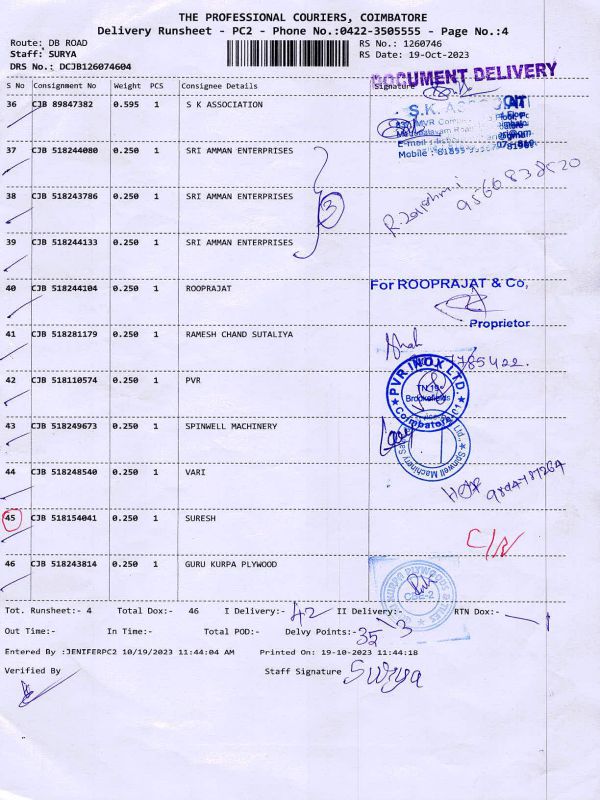 THE PROFESSIONAL COURIERS, COIMBATORE
Delivery Runsheet - PC2 - Phone No.:0422-3505555 - Page No.:4
Route: DB ROAD
RS No.: 1260746
Staff: SURYA
RS Date: 19-Oct-2023
DRS No.: DCJB126074604
DOCUMENT DELIVERY
S No Consignment No Weight PCS Consignee Details Signature
36 CJB 89847382 0.595 1 S K ASSOCIATION
37 CJB 518244080 0.250 1 SRI AMMAN ENTERPRISES
38 CJB 518243786 0.250 1 SRI AMMAN ENTERPRISES
3
9566838520
39 CJB 518244133 0.250 1 SRI AMMAN ENTERPRISES
40 CJB 518244104 0.250 1 ROOPRAJAT
For ROOPRAJAT & Co,
Proprietor
41 CJB 518281179 0.250 1 RAMESH CHAND SUTALIYA
42 CJB 518110574 0.250 1 PVR
PVR INOX LTD.
Brookefields
Coimbatore
43 CJB 518249673 0.250 1 SPINWELL MACHINERY
Spinwell Machinery
44 CJB 518248540 0.250 1 VARI
45 CJB 518154041 0.250 1 SURESH
C/N
46 CJB 518243814 0.250 1 GURU KURPA PLYWOOD
CBE-2
Tot. Runsheet:- 4 Total Dox:- 46 I Delivery:- 42 II Delivery:- 3 RTN Dox:- 1
Out Time:- In Time:- Total POD:- Delvy Points:- 35
Entered By :JENIFERPC2 10/19/2023 11:44:04 AM Printed On: 19-10-2023 11:44:18
Verified By
Staff Signature Surya